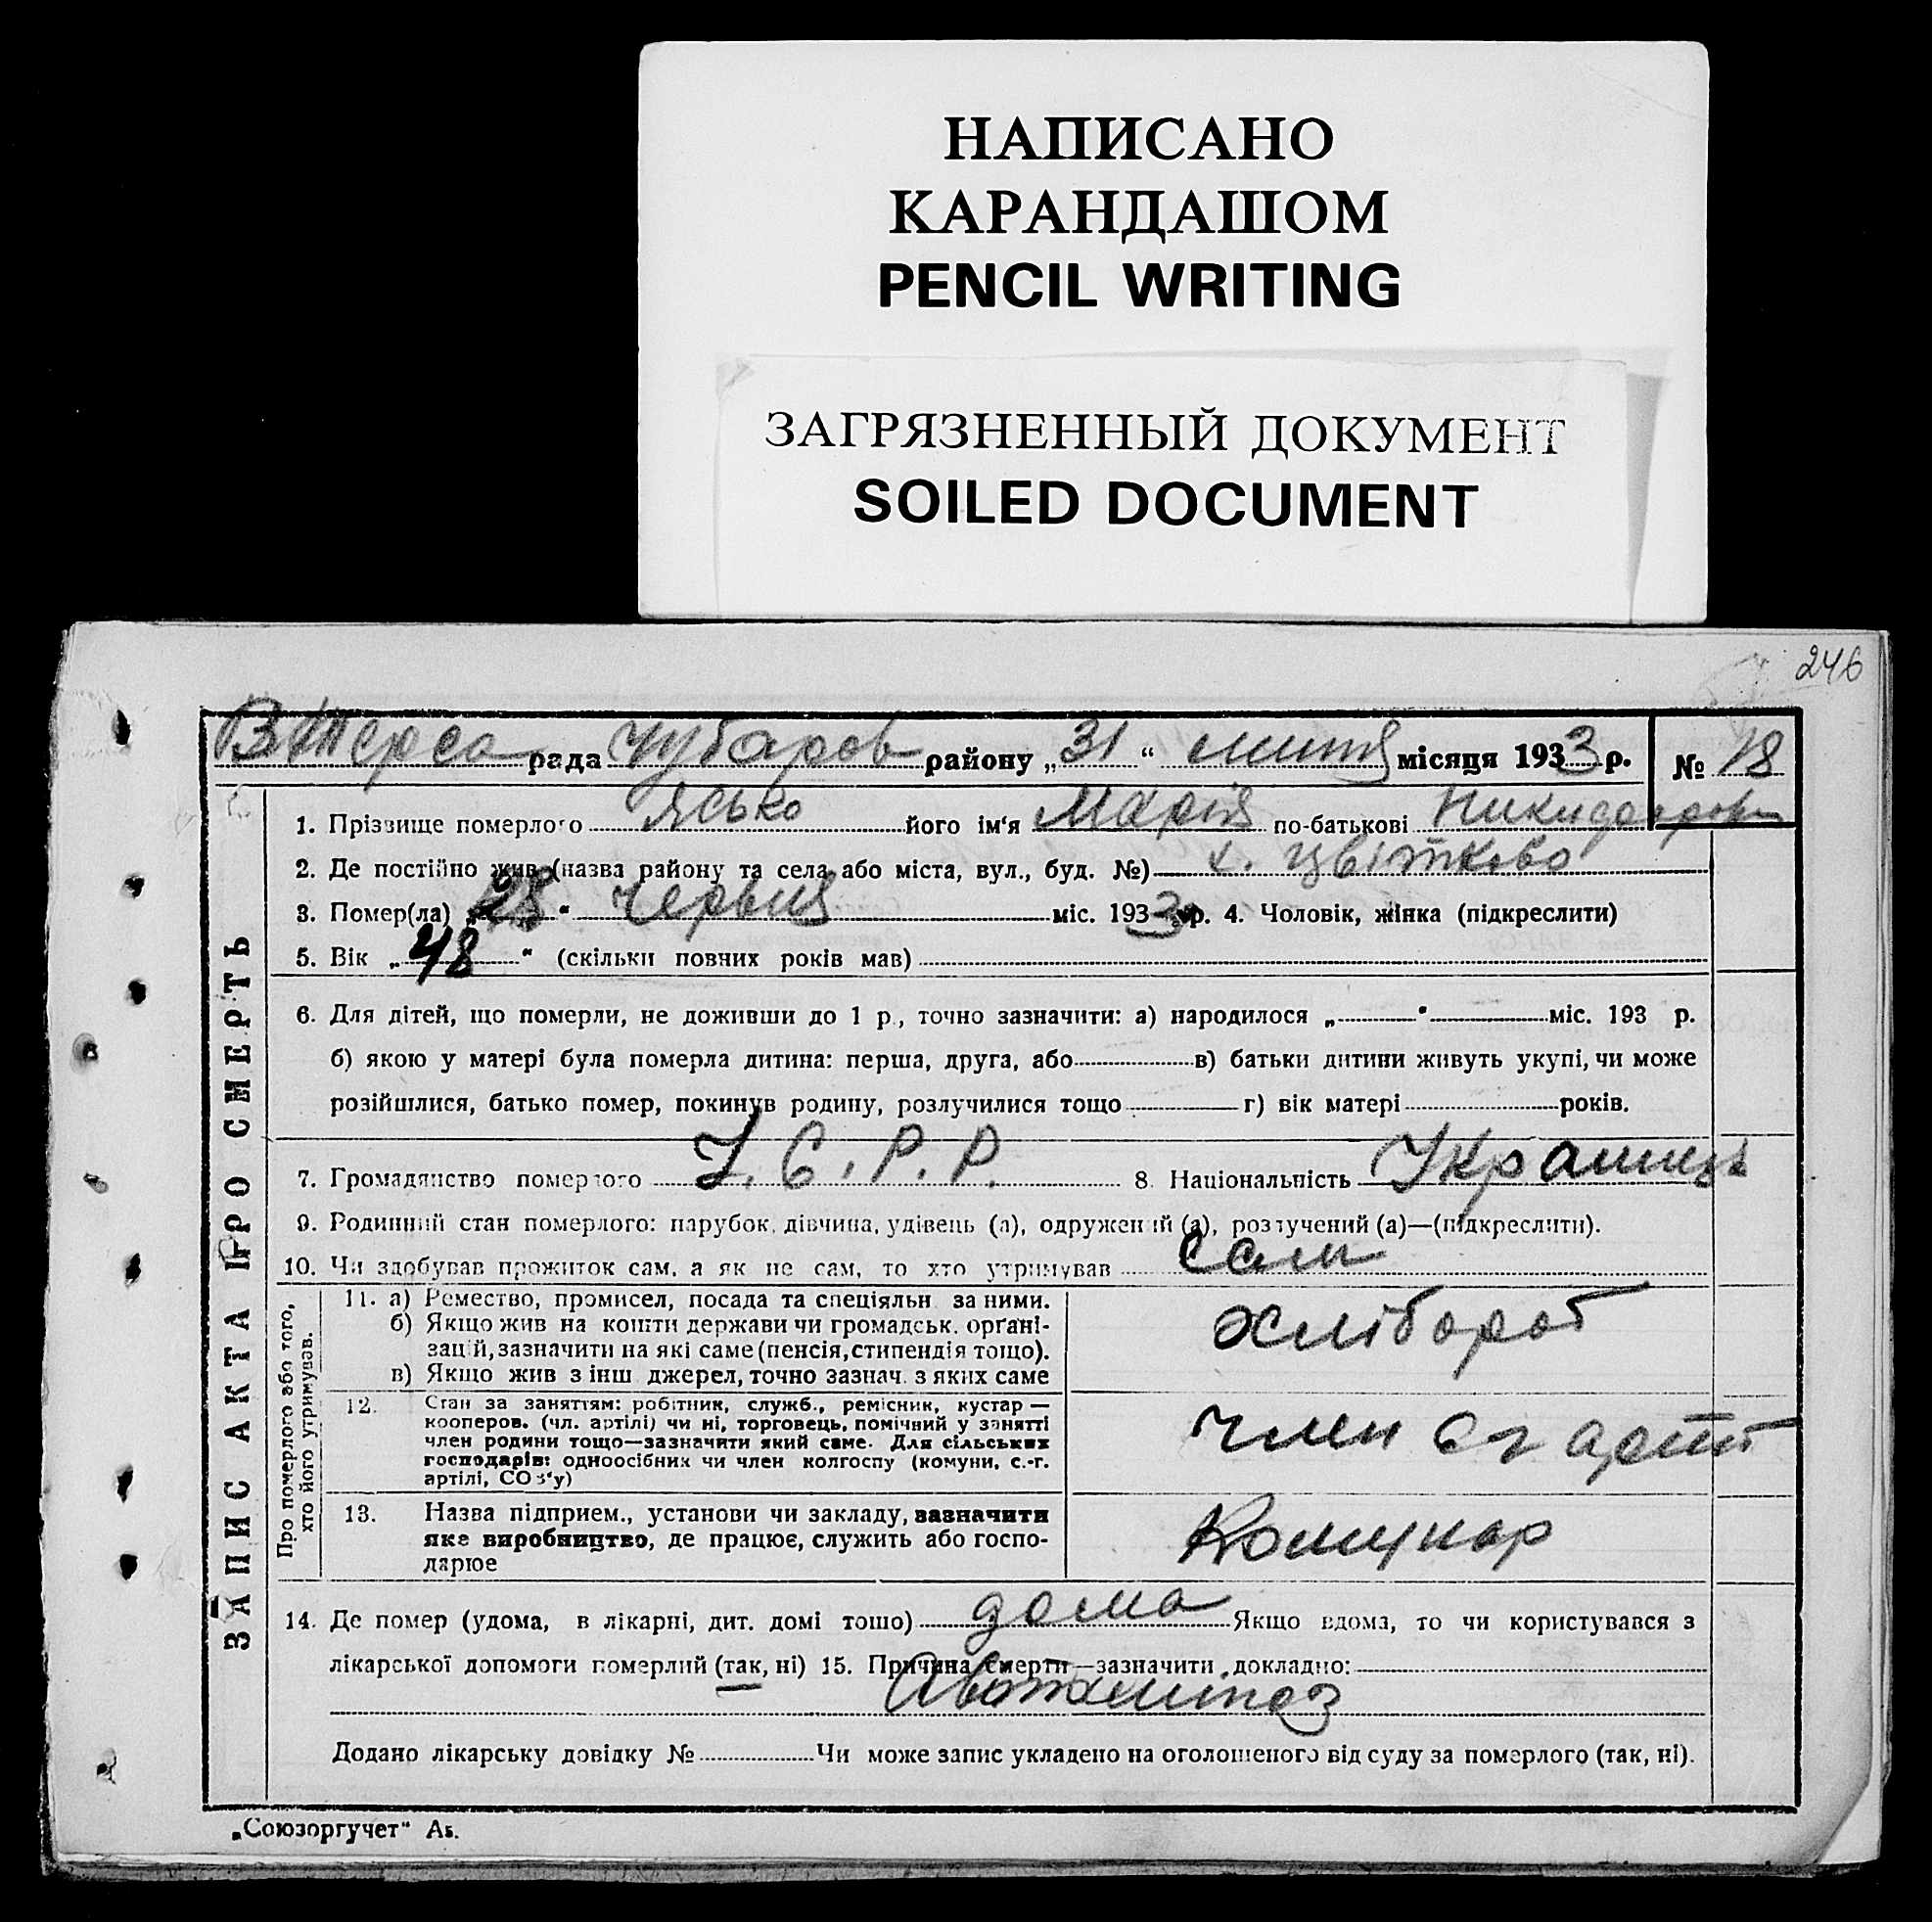 НАПИСАНО
КАРАНДАШОМ
PENCIL WRITING
ЗАГРЯЗНЕННЫЙ ДОКУМЕНТ
SOILED DOCUMENT
246
В Терса рада Чубаров району „31“ липня місяця 1933 р. № 18
ЗАПИС АКТА ПРО СМЕРТЬ
1. Прізвище померлого Ясько його ім'я Марія по-батькові
2. Де постійно жив (назва району та села або міста, вул., буд. №) х. Цвітково
3. Помер(ла) „28“ червня міс. 1933 р. 4. Чоловік, жінка (підкреслити)
5. Вік „48“ (скільки повних років мав)
6. Для дітей, що померли, не доживши до 1 р., точно зазначити: а) народилося „ “ міс. 193 р.
б) якою у матері була померла дитина: перша, друга, або в) батьки дитини живуть укупі, чи може
розійшлися, батько помер, покинув родину, розлучилися тощо г) вік матері років.
7. Громадянство померлого У.С.Р.Р. 8. Національність Українець
9. Родинний стан померлого: парубок, дівчина, удівець (а), одружений (а), розлучений (а)—(підкреслити).
10. Чи здобував прожиток сам, а як не сам, то хто утримував сам
Про померлого або того,
хто його утримував.
11. а) Ремество, промисел, посада та спеціяльн. за ними.
б) Якщо жив на кошти держави чи громадськ. органі-
зацій, зазначити на які саме (пенсія, стипендія тощо).
в) Якщо жив з інш джерел, точно зазнач. з яких саме
хлібороб
12. Стан за заняттям: робітник, служб., ремісник, кустар —
кооперов. (чл. артілі) чи ні, торговець, помічний у занятті
член родини тощо—зазначити який саме. Для сільських
господарів: одноосібних чи член колгоспу (комуни, с.-г.
артілі, СОЗ'у)
член сг артіт
13. Назва підприєм., установи чи закладу, зазначити
яке виробництво, де працює, служить або госпо-
дарює
Комунар
14. Де помер (удома, в лікарні, дит. домі тощо) дома Якщо вдома, то чи користувався з
лікарської допомоги померлий (так, ні) 15. Причина смерти—зазначити докладно:
Авітаміноз
Додано лікарську довідку № Чи може запис укладено на оголошеного від суду за померлого (так, ні).
„Союзоргучет“ Аз.